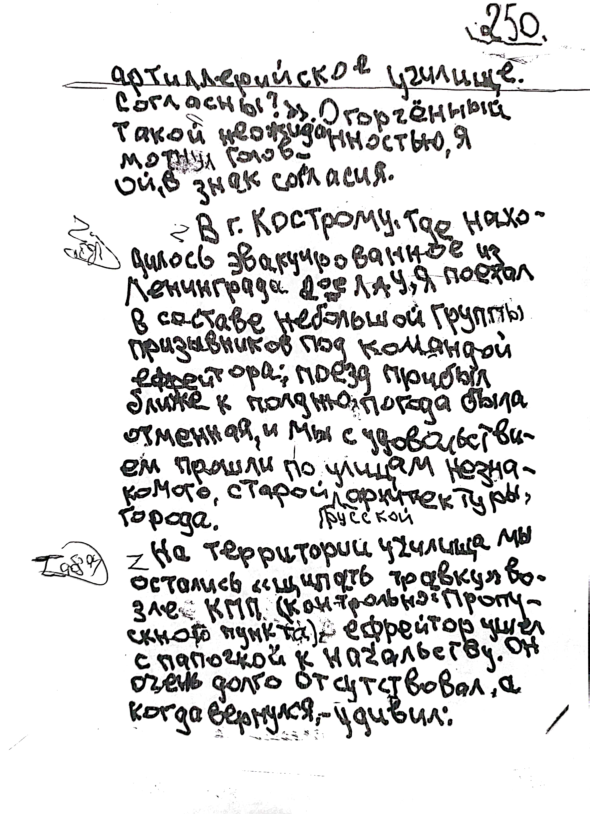 250.
артиллерийское училище.
Согласны?». Огорчённый
такой неожиданностью, я
мотнул голов-
ой, в знак согласия.
В г. Кострому, где нахо-
дилось эвакуированное из
Ленинграда ЛАУ, я поехал
в составе небольшой группы
призывников под командой
ефрейтора; поезд прибыл
ближе к полдню, погода была
отменная, и мы с удовольстви-
ем прошли по улицам незна-
комого, старой архитектуры,
русской
города.
На территории училища мы
остались «щипать травку» во-
зле КПП (контрольно-пропу-
скного пункта), ефрейтор ушел
с папочкой к начальству. Он
очень долго отсутствовал, а
когда вернулся,-удивил: